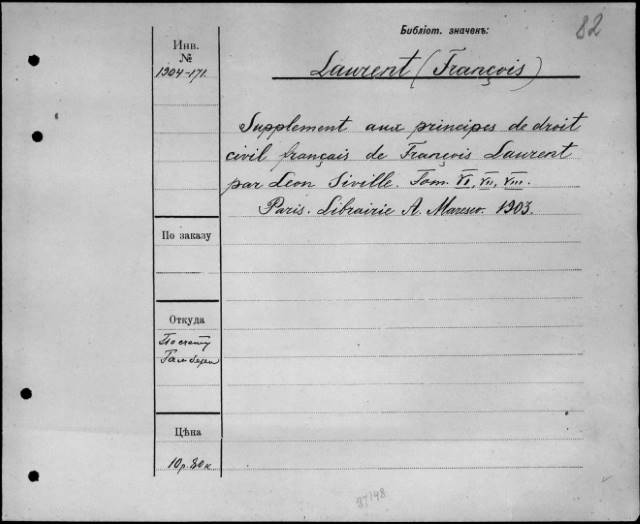 Библіот. значекъ:
82
Инв.
№
1904-171.
Laurent (François)
Supplement aux principes de droit
civil français de François Laurent
par Leon Siville. Tom. VI, VII, VIII.
Paris. Librairie A. Maresco. 1903.
По заказу
Откуда
По счету
Цѣна
10 р. 80 к
37148